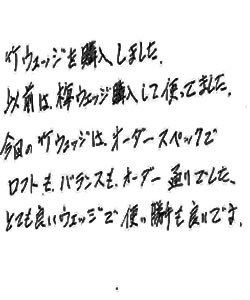 竹ウェッジを購入しました。
以前は、樺ウェッジ購入して使ってました。
今回の竹ウェッジは、オーダースペックで
ロフトも、バランスも、オーダー通りでした、
とても良いウェッジで使い勝手も良いです。